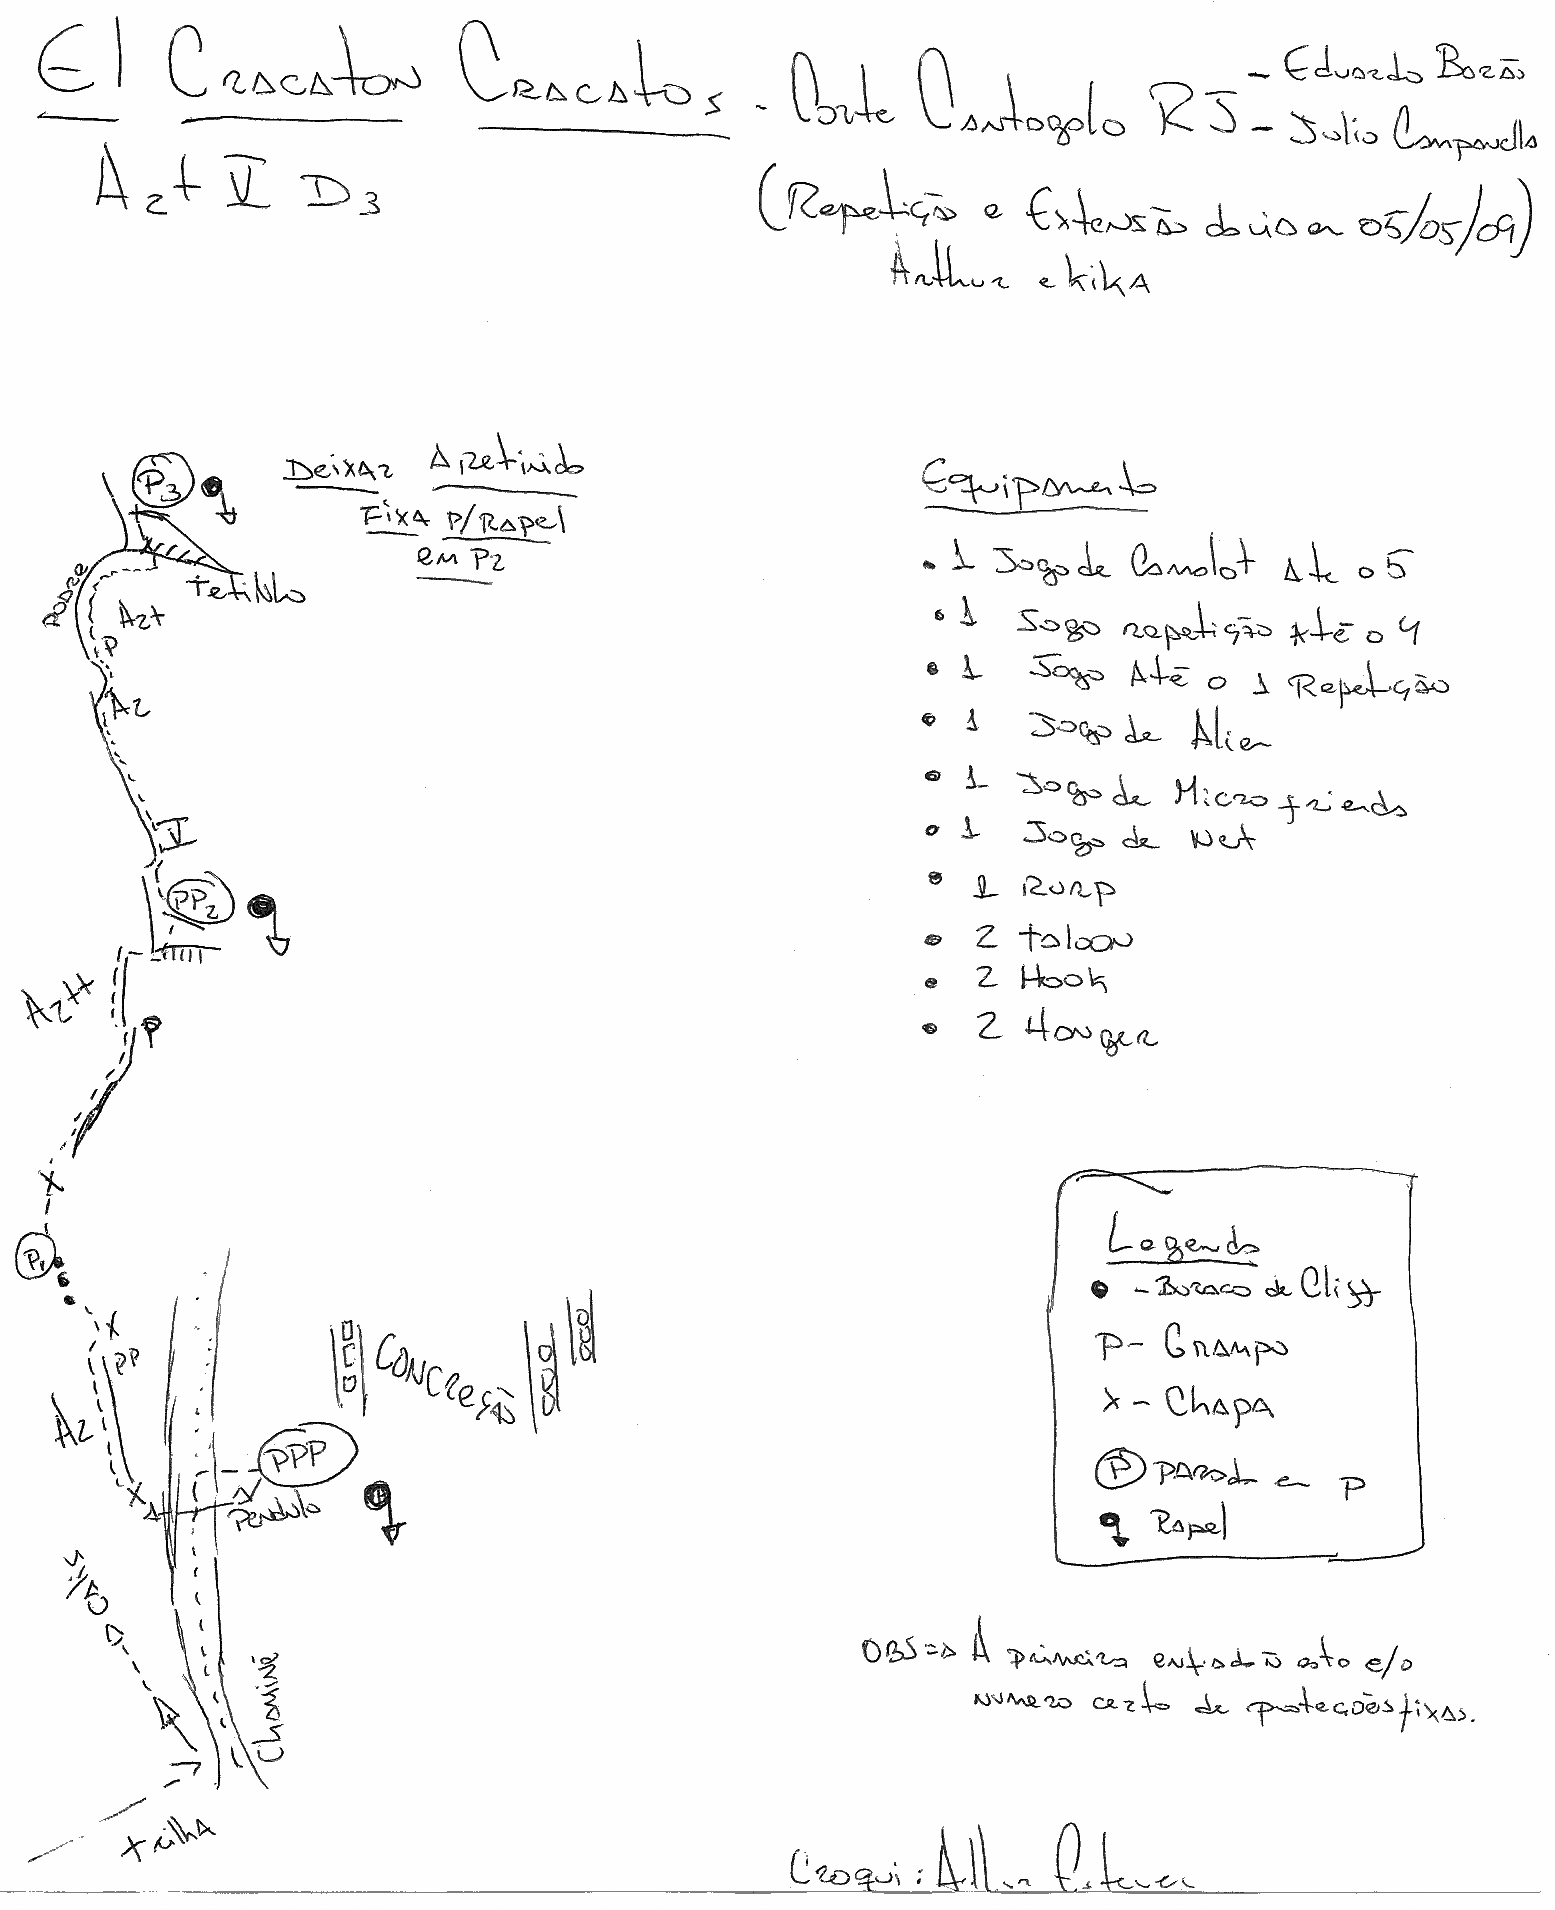 El Cracaton Cracatos - Corte Cantagalo RJ - Eduardo Barão
- Julio Campanella
A2+ V D3
(Repetição e Extensão da via em 05/05/09)
Arthur e kika
P3
Deixar a retinida
Fixa p/Rapel
em P2
tetinho
Podre
A2+
P
A2
V
PP2
A2++
P
X
P1
X
PP
A2
X
CONCREÇÃO
PPP
Pendulo
Chaminé
trilha
Equipamento
• 1 Jogo de Camalot Ate o 5
• 1 Jogo repetição Até o 4
• 1 Jogo Até o 1 Repetição
• 1 Jogo de Alien
• 1 Jogo de Micro friends
• 1 Jogo de Nut
• 1 Rurp
• 2 taloon
• 2 Hook
• 2 Hanger
Legenda
● - Buraco de Cliff
P - Grampo
X - Chapa
P parada em P
Rapel
OBS => A primeira enfiada ñ esta c/o
numero certo de proteções fixas.
Croqui: Arthur Esteves